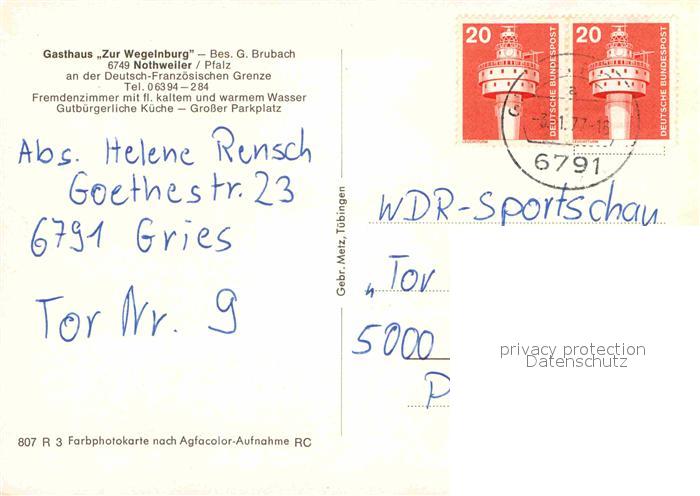 Gasthaus „Zur Wegelnburg" – Bes. G. Brubach
6749 Nothweiler / Pfalz
an der Deutsch-Französischen Grenze
Tel. 06394–284
Fremdenzimmer mit fl. kaltem und warmem Wasser
Gutbürgerliche Küche – Großer Parkplatz
Abs. Helene Rensch
Goethestr. 23
6791 Gries
Tor Nr. 9
807 R 3 Farbphotokarte nach Agfacolor-Aufnahme RC
Gebr. Metz, Tübingen
20
DEUTSCHE BUNDESPOST
20
DEUTSCHE BUNDESPOST
6791
WDR-Sportschau
„Tor
5000
privacy protection
Datenschutz